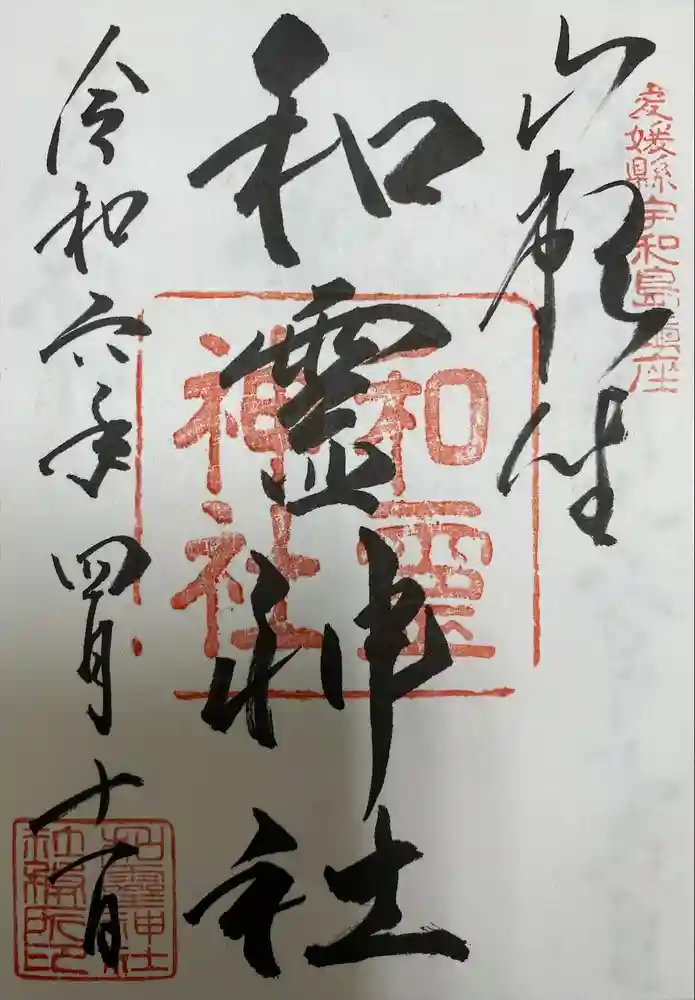 愛媛縣宇和島鎮座
和霊神社
和霊
神社
令和六年四月十一日
和靈神社
社務所印